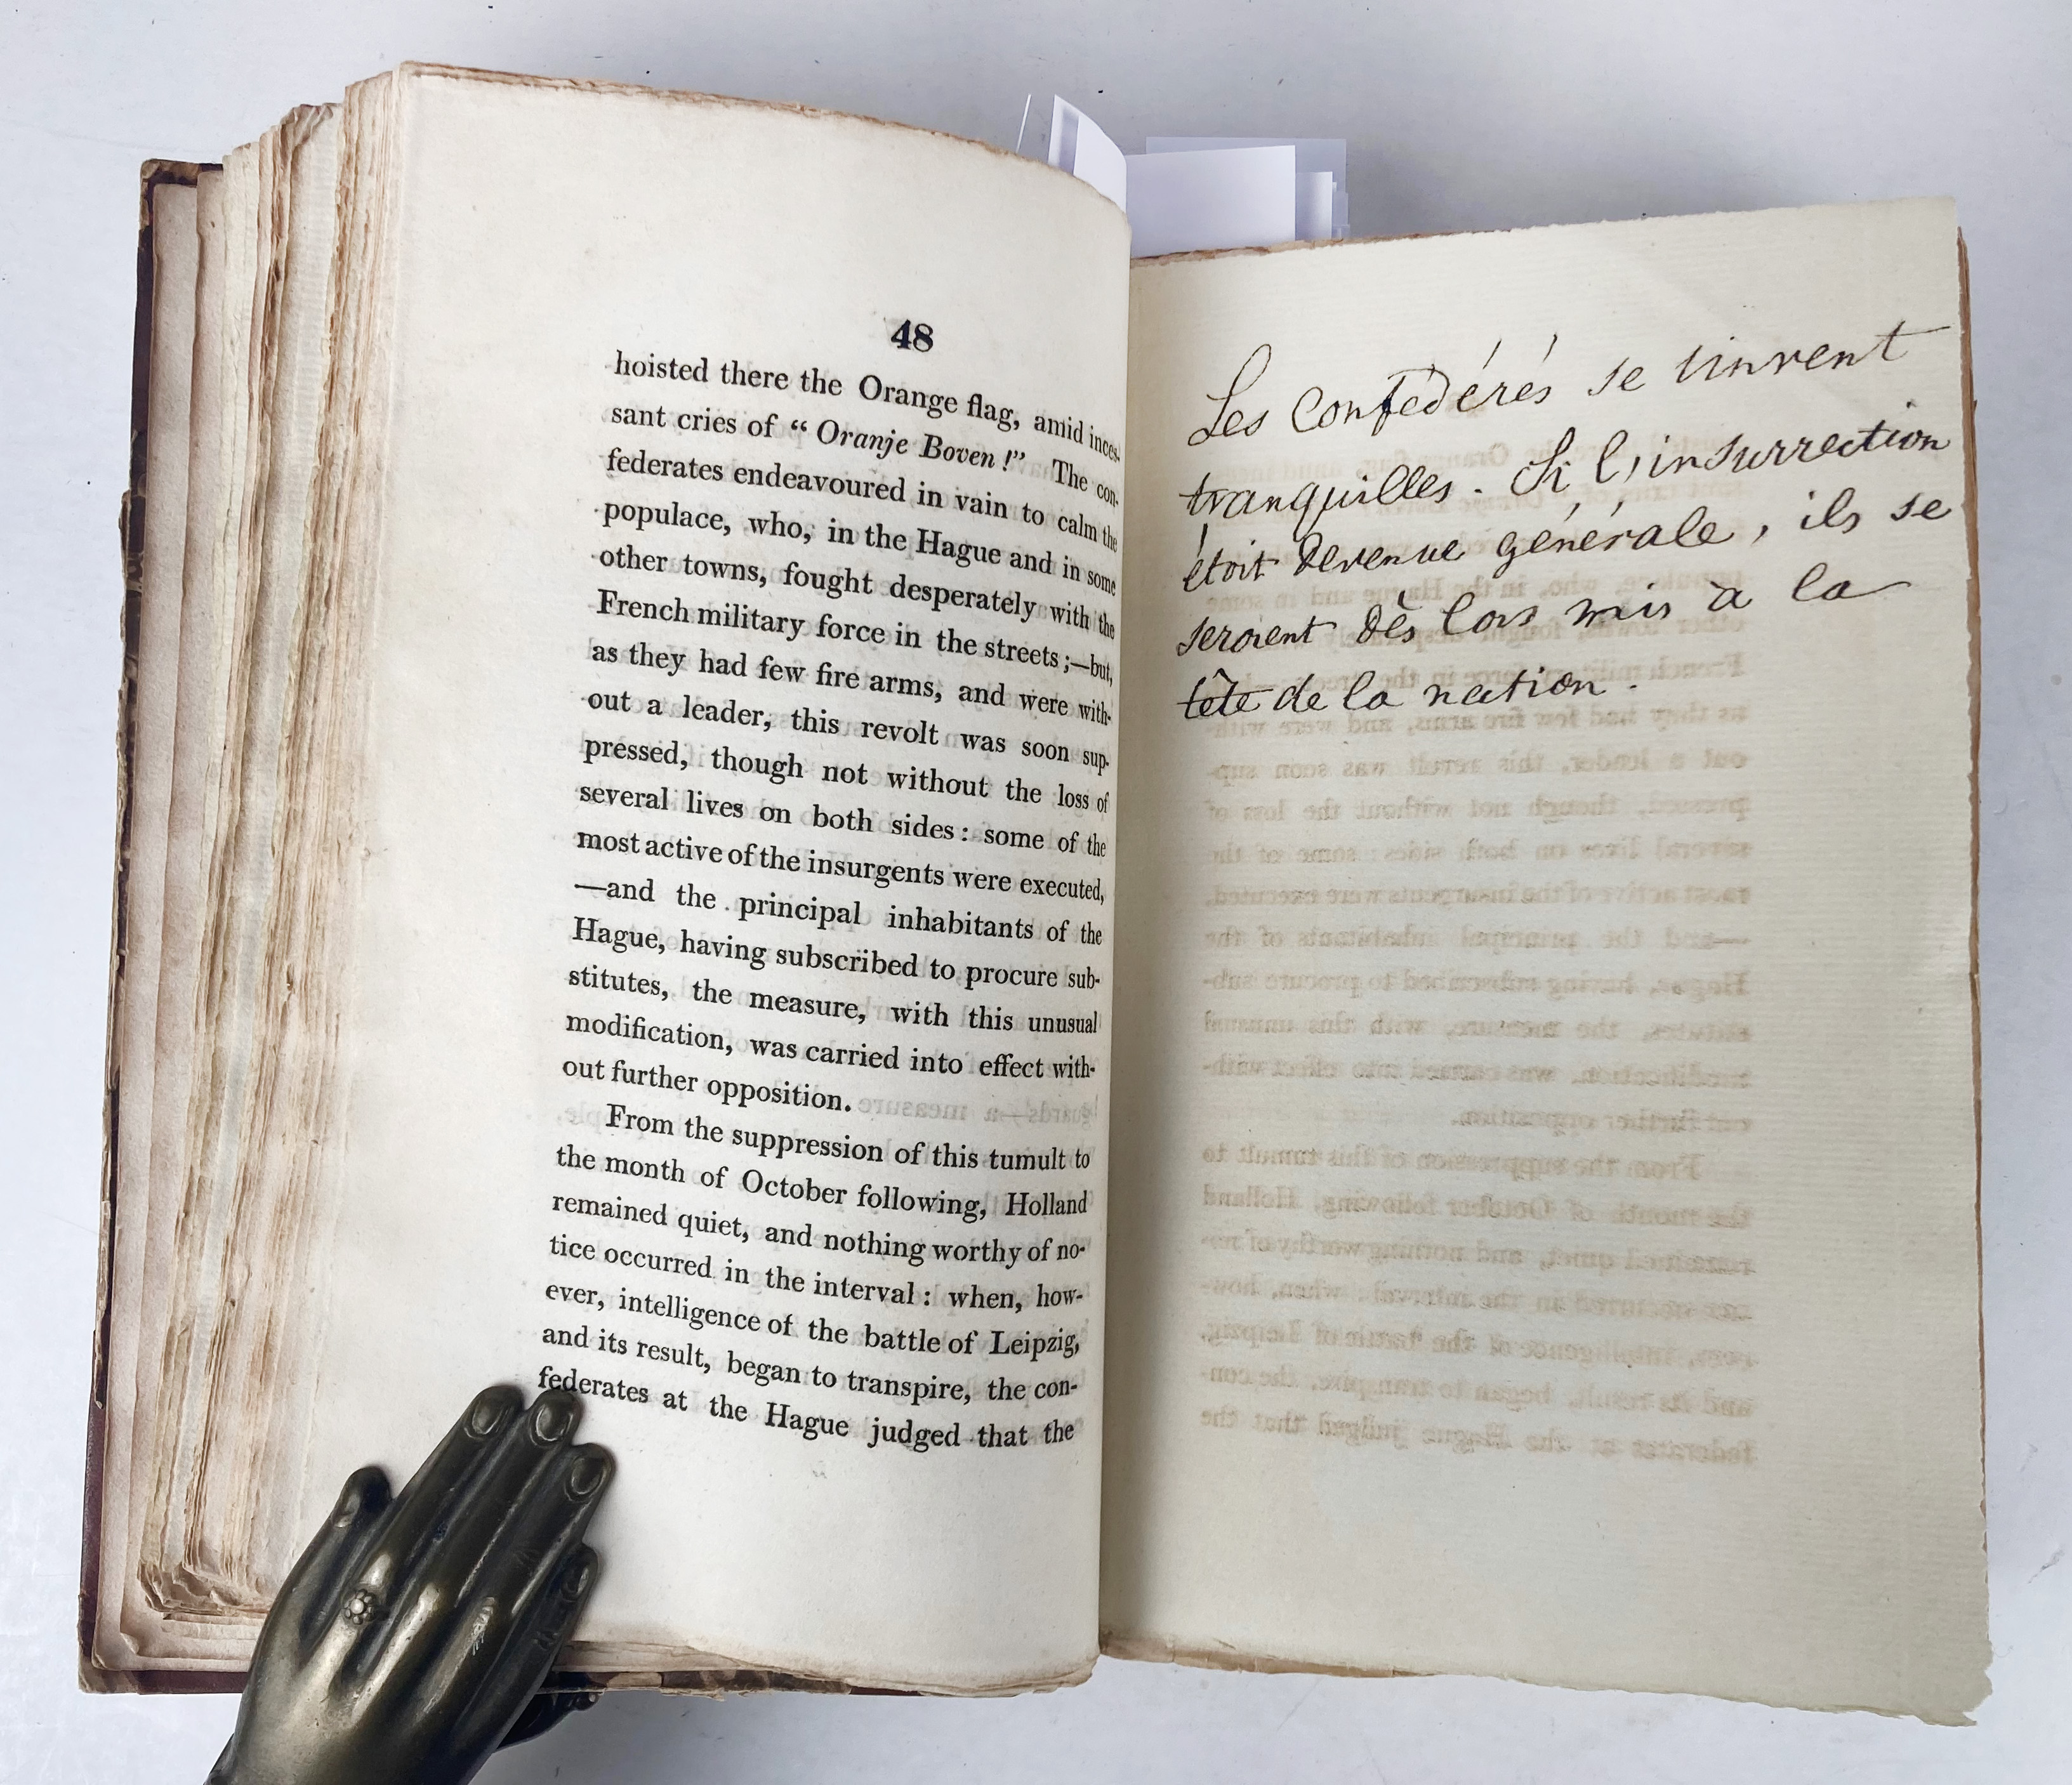 48
hoisted there the Orange flag, amid inces-
sant cries of “ Oranje Boven !” The con-
federates endeavoured in vain to calm the
populace, who, in the Hague and in some
other towns, fought desperately with the
French military force in the streets ;—but,
as they had few fire arms, and were with-
out a leader, this revolt was soon sup-
pressed, though not without the loss of
several lives on both sides : some of the
most active of the insurgents were executed,
—and the principal inhabitants of the
Hague, having subscribed to procure sub-
stitutes, the measure, with this unusual
modification, was carried into effect with-
out further opposition.
From the suppression of this tumult to
the month of October following, Holland
remained quiet, and nothing worthy of no-
tice occurred in the interval : when, how-
ever, intelligence of the battle of Leipzig,
and its result, began to transpire, the con-
federates at the Hague judged that the
Les Confédérés se tinrent
tranquilles. Si l'insurrection
étoit devenue générale, ils se
seroient dès lors mis à la
tête de la nation.